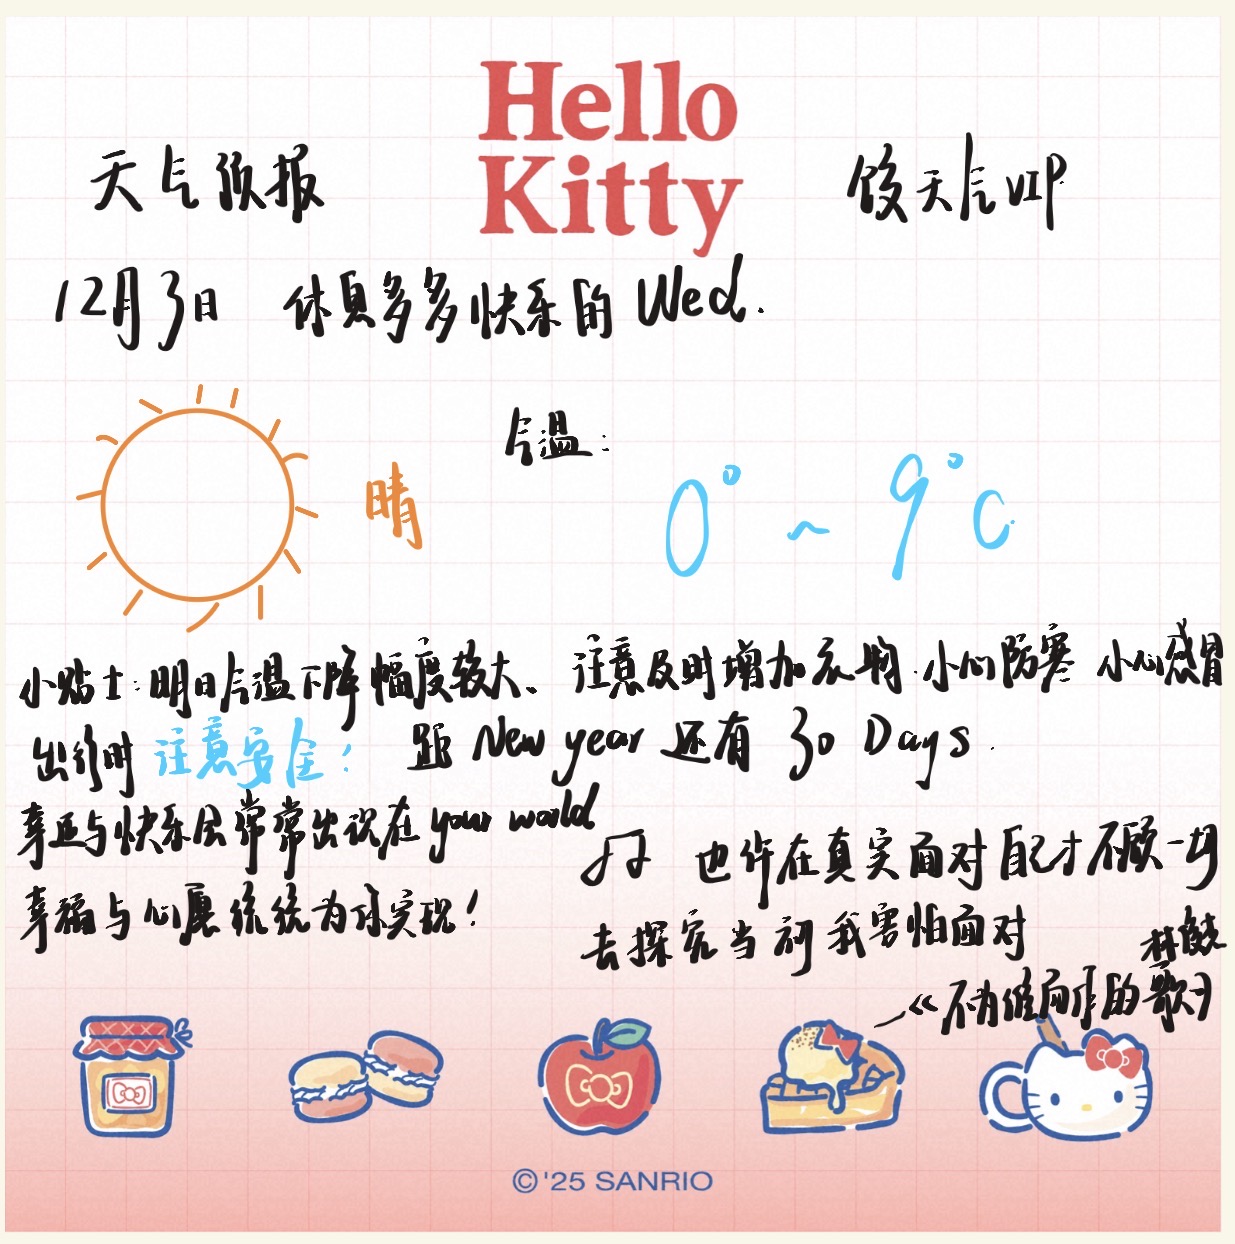 Hello
Kitty
天气预报
饺天气VIP
12月3日 休息多多快乐的 Wed.
晴
气温:
0°~9°C
小贴士:明日气温下降幅度较大、注意及时增加衣物.小心防寒 小心感冒
出行时 注意安全! 距 New year 还有 30 Days.
幸运与快乐会常常出现在 your world
幸福与心愿统统为你实现!
也许在真实面对自己才不顾一切
去探究当初我害怕面对
林俊杰
—《不为谁而作的歌》
©'25 SANRIO